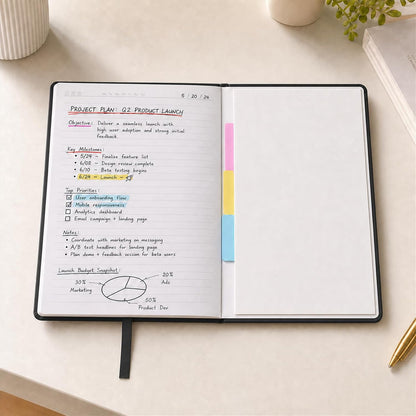 5 / 20 / 24
PROJECT PLAN: Q2 PRODUCT LAUNCH
Objective: Deliver a seamless launch with
high user adoption and strong initial
feedback.
Key Milestones:
• 5/24 – Finalize feature list
• 6/02 – Design review complete
• 6/10 – Beta testing begins
• 6/24 – Launch –
Top Priorities:
☑ User onboarding flow
☑ Mobile responsiveness
☐ Analytics dashboard
☐ Email campaign + landing page
Notes:
• Coordinate with marketing on messaging
• A/B test headlines for landing page
• Plan demo + feedback session for beta users
Launch Budget Snapshot:
20%
Ads
30%
Marketing
50%
Product Dev